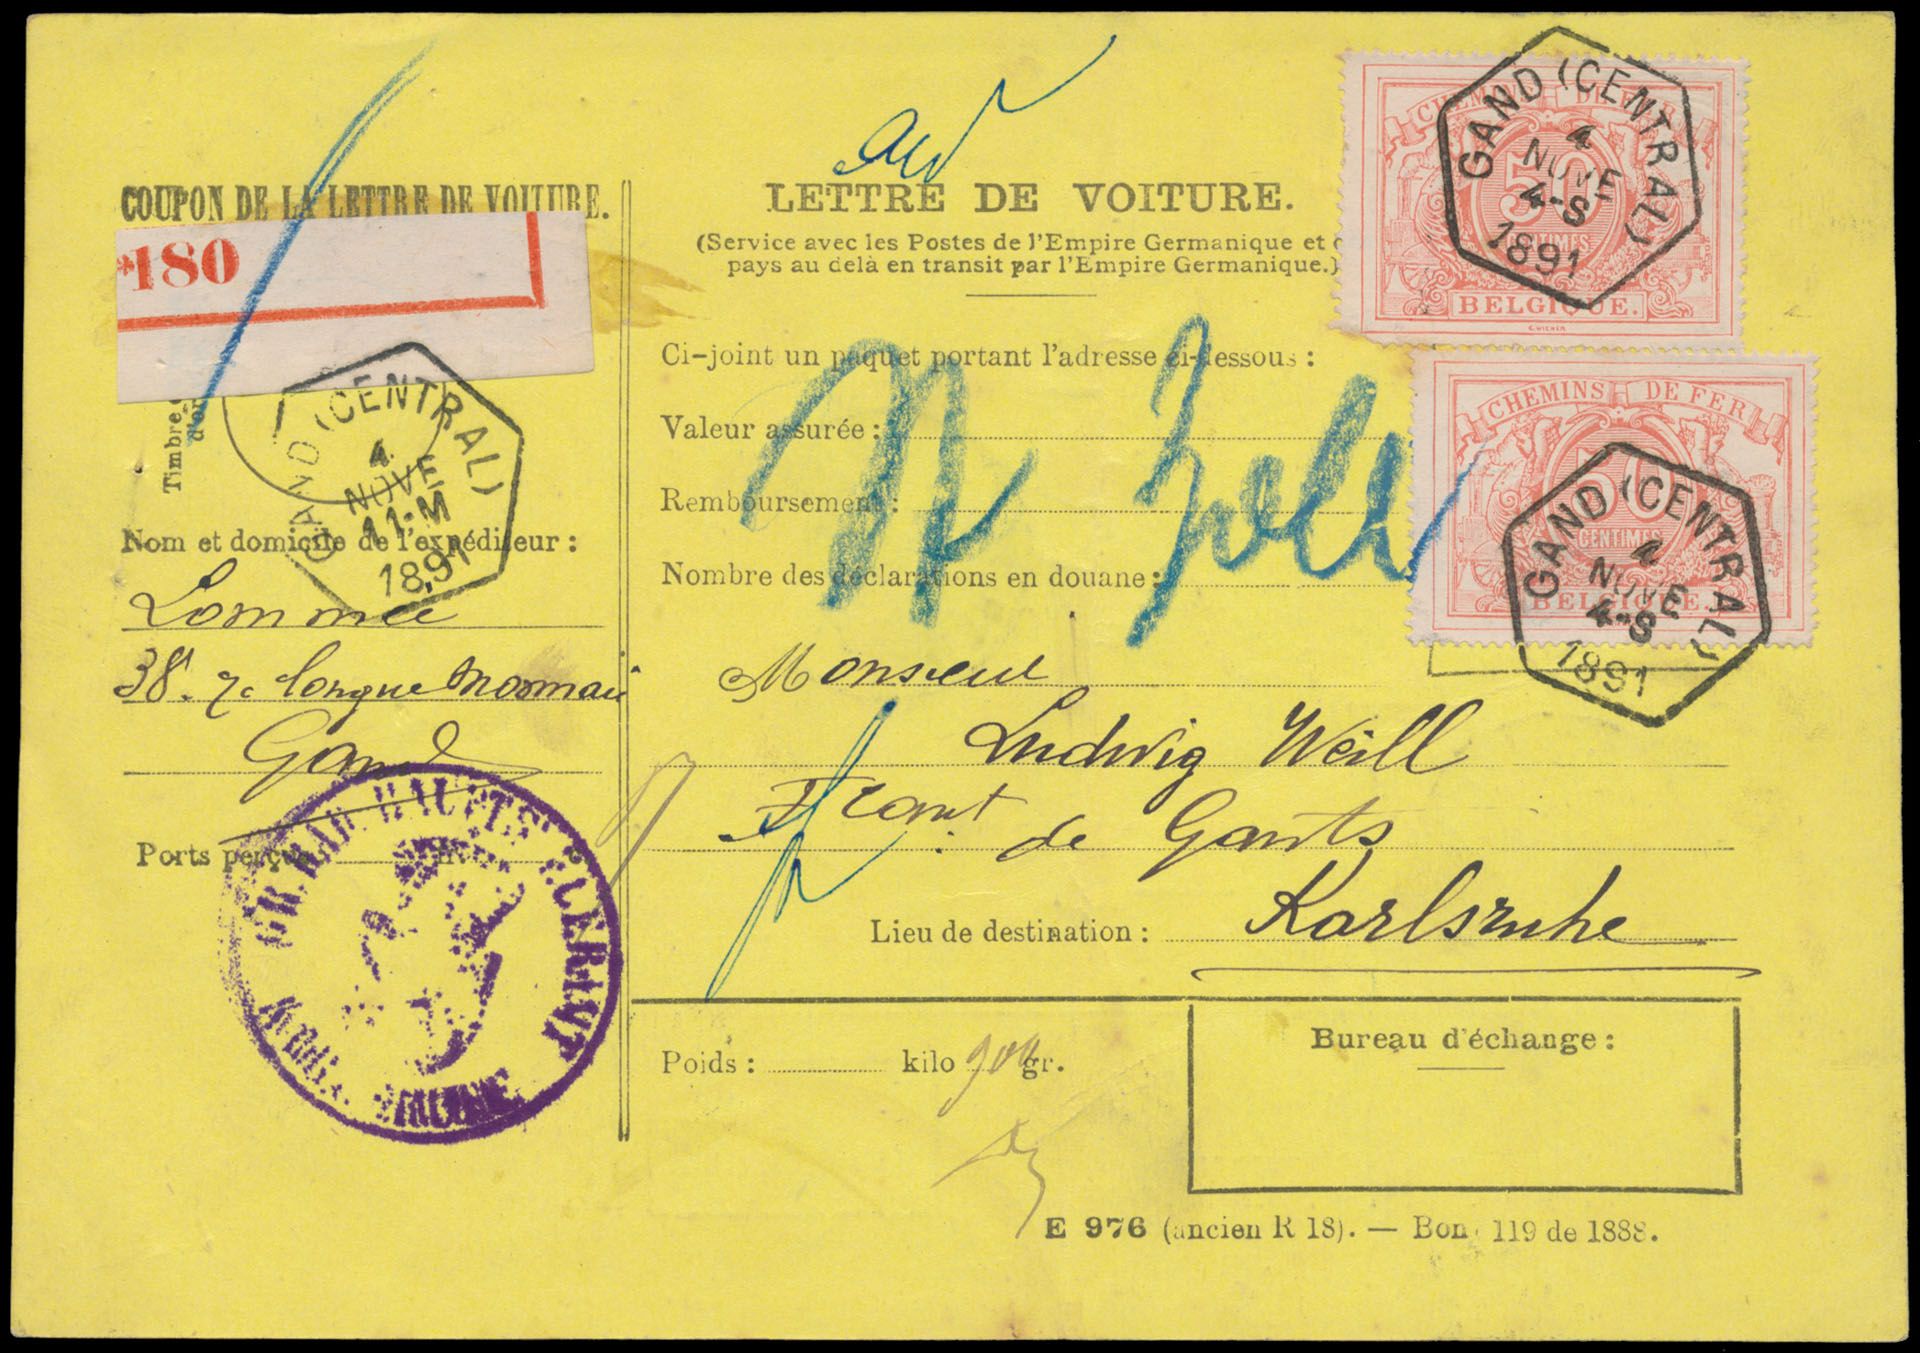 COUPON DE LA LETTRE DE VOITURE.
*180
Timbre
GAND (CENTRAL)
4
NOVE
11-M
1891
Nom et domicile de l'expéditeur :
Lommée
38. longue
Gand
Ports perçus
LETTRE DE VOITURE.
(Service avec les Postes de l'Empire Germanique et
pays au delà en transit par l'Empire Germanique.)
Ci-joint un paquet portant l'adresse ci-dessous :
Valeur assurée :
Remboursement :
Nombre des déclarations en douane :
Monsieur
Ludwig Weill
de Gants
Lieu de destination : Karlsruhe
Poids : kilo 900 gr.
Bureau d'échange :
E 976 (ancien R 18). — Bon 119 de 1888.
CHEMINS DE FER
50
CENTIMES
BELGIQUE.
GAND (CENTRAL)
4
NOVE
4-S
1891
CHEMINS DE FER
50
CENTIMES
BELGIQUE
GAND (CENTRAL)
4
NOVE
4-S
1891